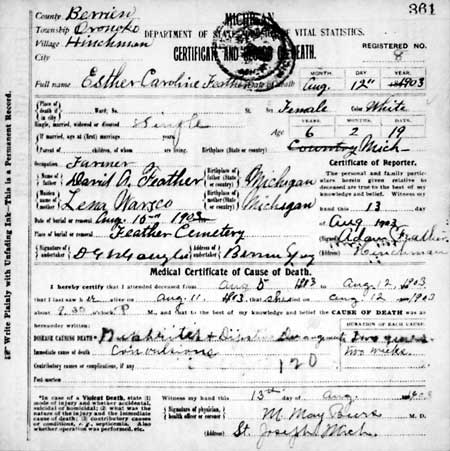 361
County Berrien
MICHIGAN
Township Oronoko
DEPARTMENT OF STATE VITAL STATISTICS.
Village Hinchman
CERTIFICATE AND RECORD OF DEATH.
City
REGISTERED NO. 8
MONTH. DAY. YEAR.
Full name Esther Caroline Feather Date of Death Aug. 12th 1903
Place of death if in city No. Ward; St. Sex Female Color White
Single, married, widowed or divorced Single
YEARS. MONTHS. DAYS.
If married, age at (first) marriage years. Age 6 2 19
Parent of children, of whom are living. Birthplace (State or country) Mich
Occupation Farmer
Certificate of Reporter.
Name of father David A. Feather Birthplace of father (State or country) Michigan
The personal and family particulars herein given relative to deceased are true to the best of my knowledge and belief. Witness my hand this 13 day of Aug 1903
Maiden name of mother Lena Birthplace of mother (State or country) Michigan
Date of burial or removal Aug 15th 1903
Place of burial or removal Feather Cemetery
(Signed) Adam Feather
Signature of undertaker Address of undertaker Berrien Spg
(Address) Hinchman
Medical Certificate of Cause of Death.
I hereby certify that I attended deceased from Aug 5 1903 to Aug. 12, 1903
that I last saw her alive on Aug. 11 1903 that she died on Aug. 12 1903
about 9.30 o'clock P M., and that to the best of my knowledge and belief the CAUSE OF DEATH was as
hereunder written:
DURATION OF EACH CAUSE.
DISEASE CAUSING DEATH Nephritis &
Immediate cause of death Convulsions two weeks.
Contributory causes or complications, if any 120
Post mortem
"In case of a Violent Death, state (1) mode of injury and whether accidental, suicidal or homicidal; (2) what was the nature of the injury and the immediate cause of death; (3) contributory causes or conditions, e. g., septicemia. Also whether operation was performed, etc.
Witness my hand this 13th day of Aug. 1903
Signature of physician, health officer or coroner M. May M. D.
(Address) St. Joseph Mich.
Write Plainly with Unfading Ink—This is a Permanent Record.